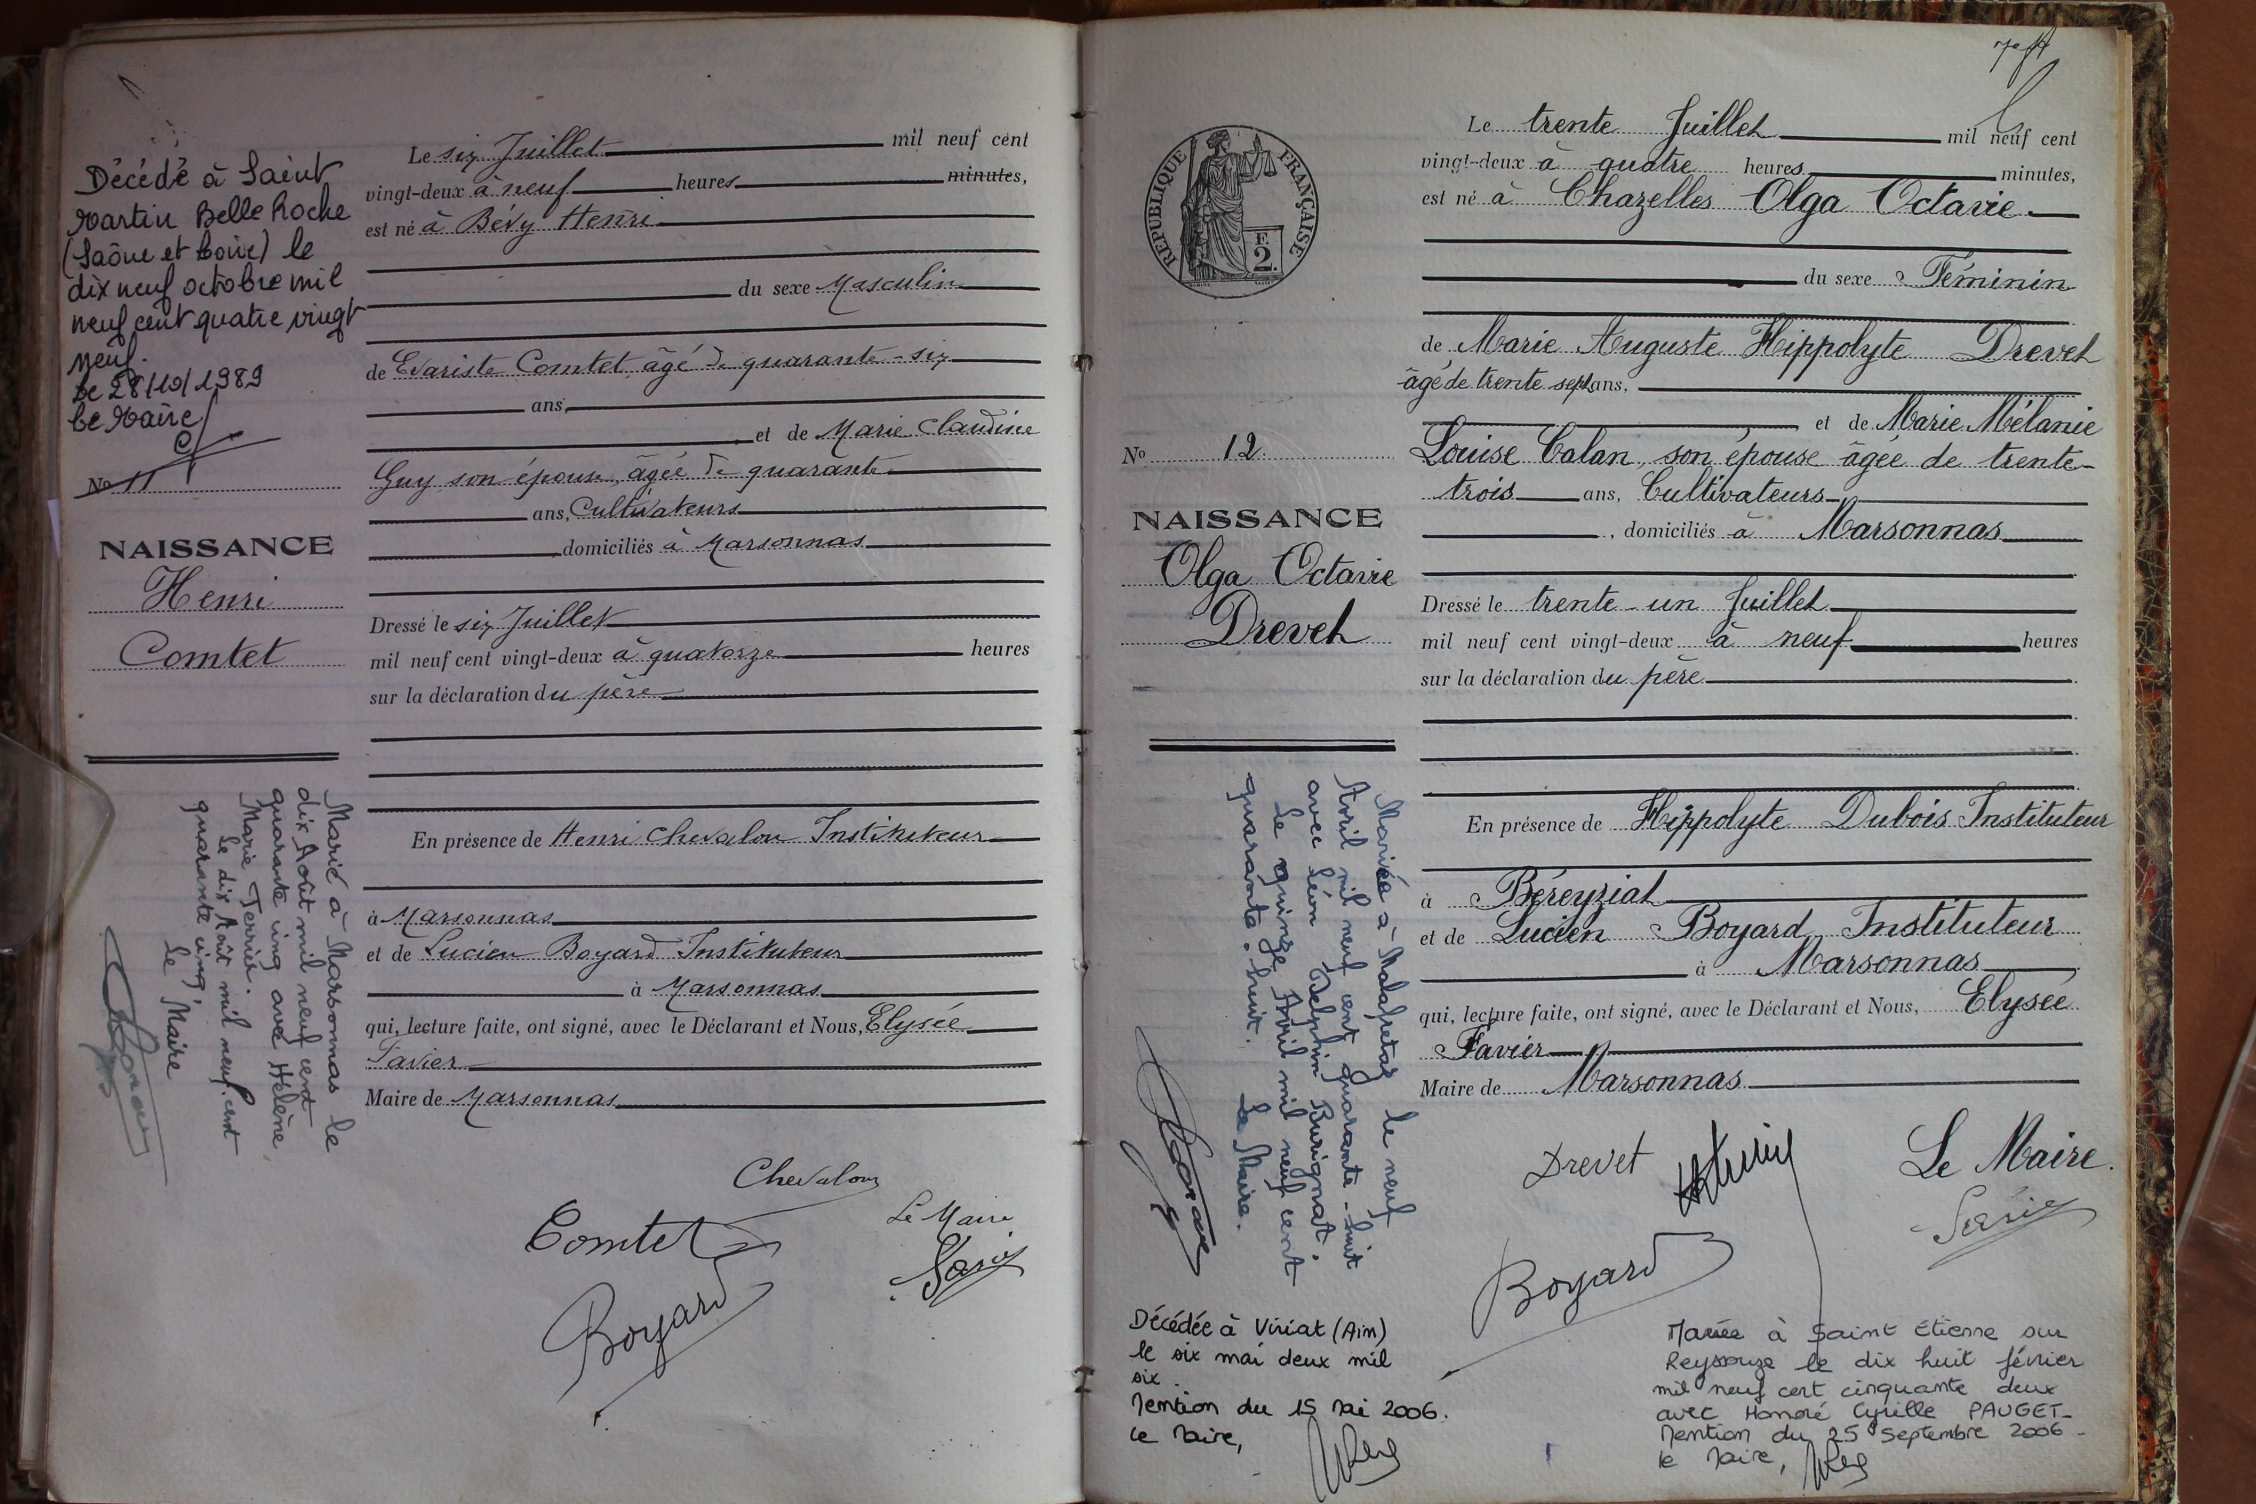 Décédé à Saint
Martin Belle Roche
(Saône et Loire) le
dix neuf octobre mil
neuf cent quatre vingt
neuf.
Le 28/10/1989
Le Maire
No 11
NAISSANCE
Henri
Comtet
Marié à Marsonnas le
dix Août mil neuf cent
quarante cinq avec Hélène
Marie Terrier.
Le dix Août mil neuf cent
quarante cinq,
Le Maire
Le six Juillet mil neuf cent
vingt-deux à neuf heures minutes,
est né à Bévy Henri
du sexe Masculin
de Evariste Comtet, âgé de quarante-six
ans,
et de Marie Claudine
Guy son épouse, âgée de quarante
ans, Cultivateurs
domiciliés à Marsonnas
Dressé le six Juillet
mil neuf cent vingt-deux à quatorze heures
sur la déclaration du père
En présence de Henri Chevalon Instituteur
à Marsonnas
et de Lucien Boyard Instituteur
à Marsonnas
qui, lecture faite, ont signé, avec le Déclarant et Nous, Elysée
Favier
Maire de Marsonnas
Chevalon
Comtet
Le Maire
Boyard
RÉPUBLIQUE FRANÇAISE
F.
2.
No 12.
NAISSANCE
Olga Octavie
Drevet
Mariée à Malafretaz le neuf
Avril mil neuf cent quarante-huit
avec Léon Delphin Burignat.
Le quinze Avril mil neuf cent
quarante-huit. Le Maire.
Décédée à Viriat (Ain)
le six mai deux mil
six.
Mention du 15 Mai 2006.
Le Maire,
Le trente Juillet mil neuf cent
vingt-deux à quatre heures minutes,
est né à Chazelles Olga Octavie
du sexe Féminin
de Marie Auguste Hippolyte Drevet
âgé de trente sept ans,
et de Marie Mélanie
Louise Calan, son épouse âgée de trente-
trois ans, Cultivateurs
, domiciliés à Marsonnas
Dressé le trente-un Juillet
mil neuf cent vingt-deux à neuf heures
sur la déclaration du père
En présence de Hippolyte Dubois Instituteur
à Béreyziat
et de Lucien Boyard, Instituteur
à Marsonnas
qui, lecture faite, ont signé, avec le Déclarant et Nous, Elysée
Favier
Maire de Marsonnas
Drevet
Le Maire.
Boyard
Mariée à Saint Etienne sur
Reyssouze le dix huit février
mil neuf cent cinquante deux
avec Honoré Cyrille PAUGET-
Mention du 25 Septembre 2006-
le Maire,